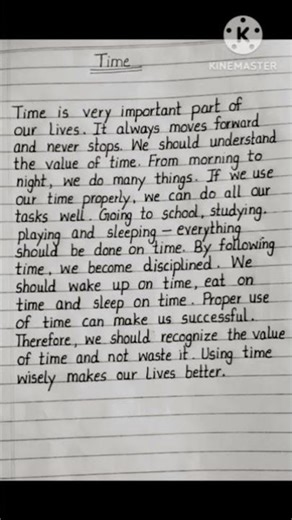 KINEMASTER
Time
Time is very important part of
our lives. It always moves forward
and never stops. We should understand
the value of time. From morning to
night, we do many things. If we use
our time properly, we can do all our
tasks well. Going to school, studying.
playing and sleeping – everything
should be done on time. By following
time, we become disciplined. We
should wake up on time, eat on
time and sleep on time. Proper use
of time can make us successful.
Therefore, we should recognize the value
of time and not waste it. Using time
wisely makes our Lives better.